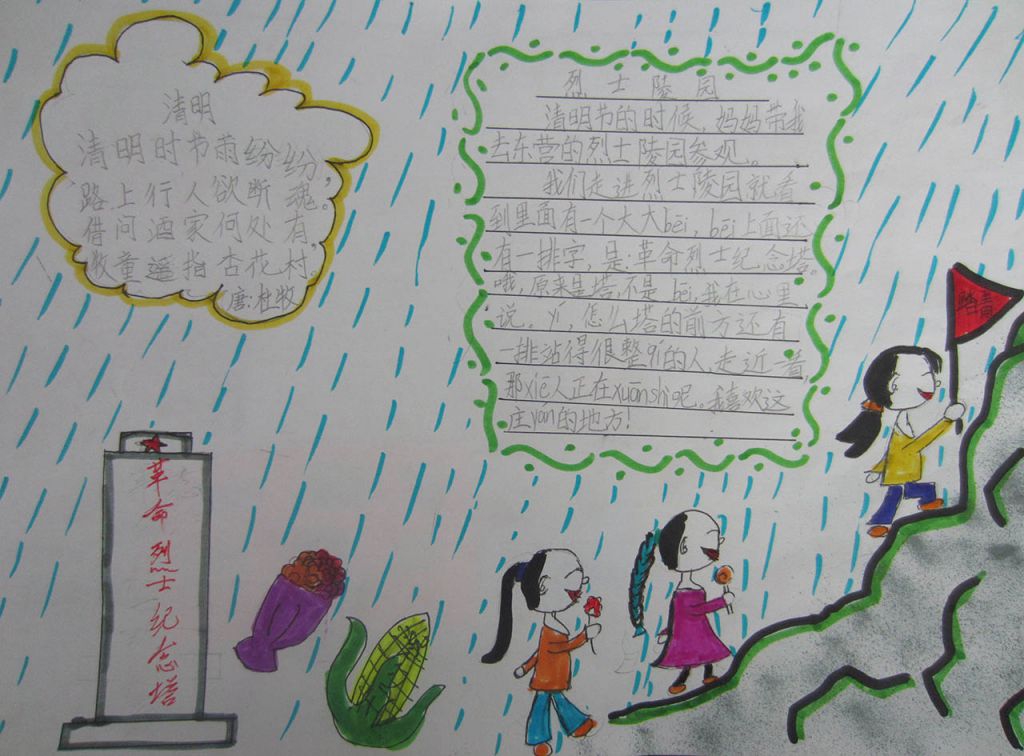 清明
清明时节雨纷纷,
路上行人欲断魂。
借问酒家何处有,
牧童遥指杏花村。
唐:杜牧
烈士陵园
清明节的时候,妈妈带我
去东营的烈士陵园参观。
我们走进烈士陵园就看
到里面有一个大大bēi,bēi上面还
有一排字,是:革命烈士纪念塔。
哦,原来是塔,不是bēi,我在心里
说。yí,怎么塔的前方还有
一排站得很整qí的人,走近一看,
那xiē人正在xuānshì呢。我喜欢这
庄yán的地方!
踏青
革命烈士纪念塔